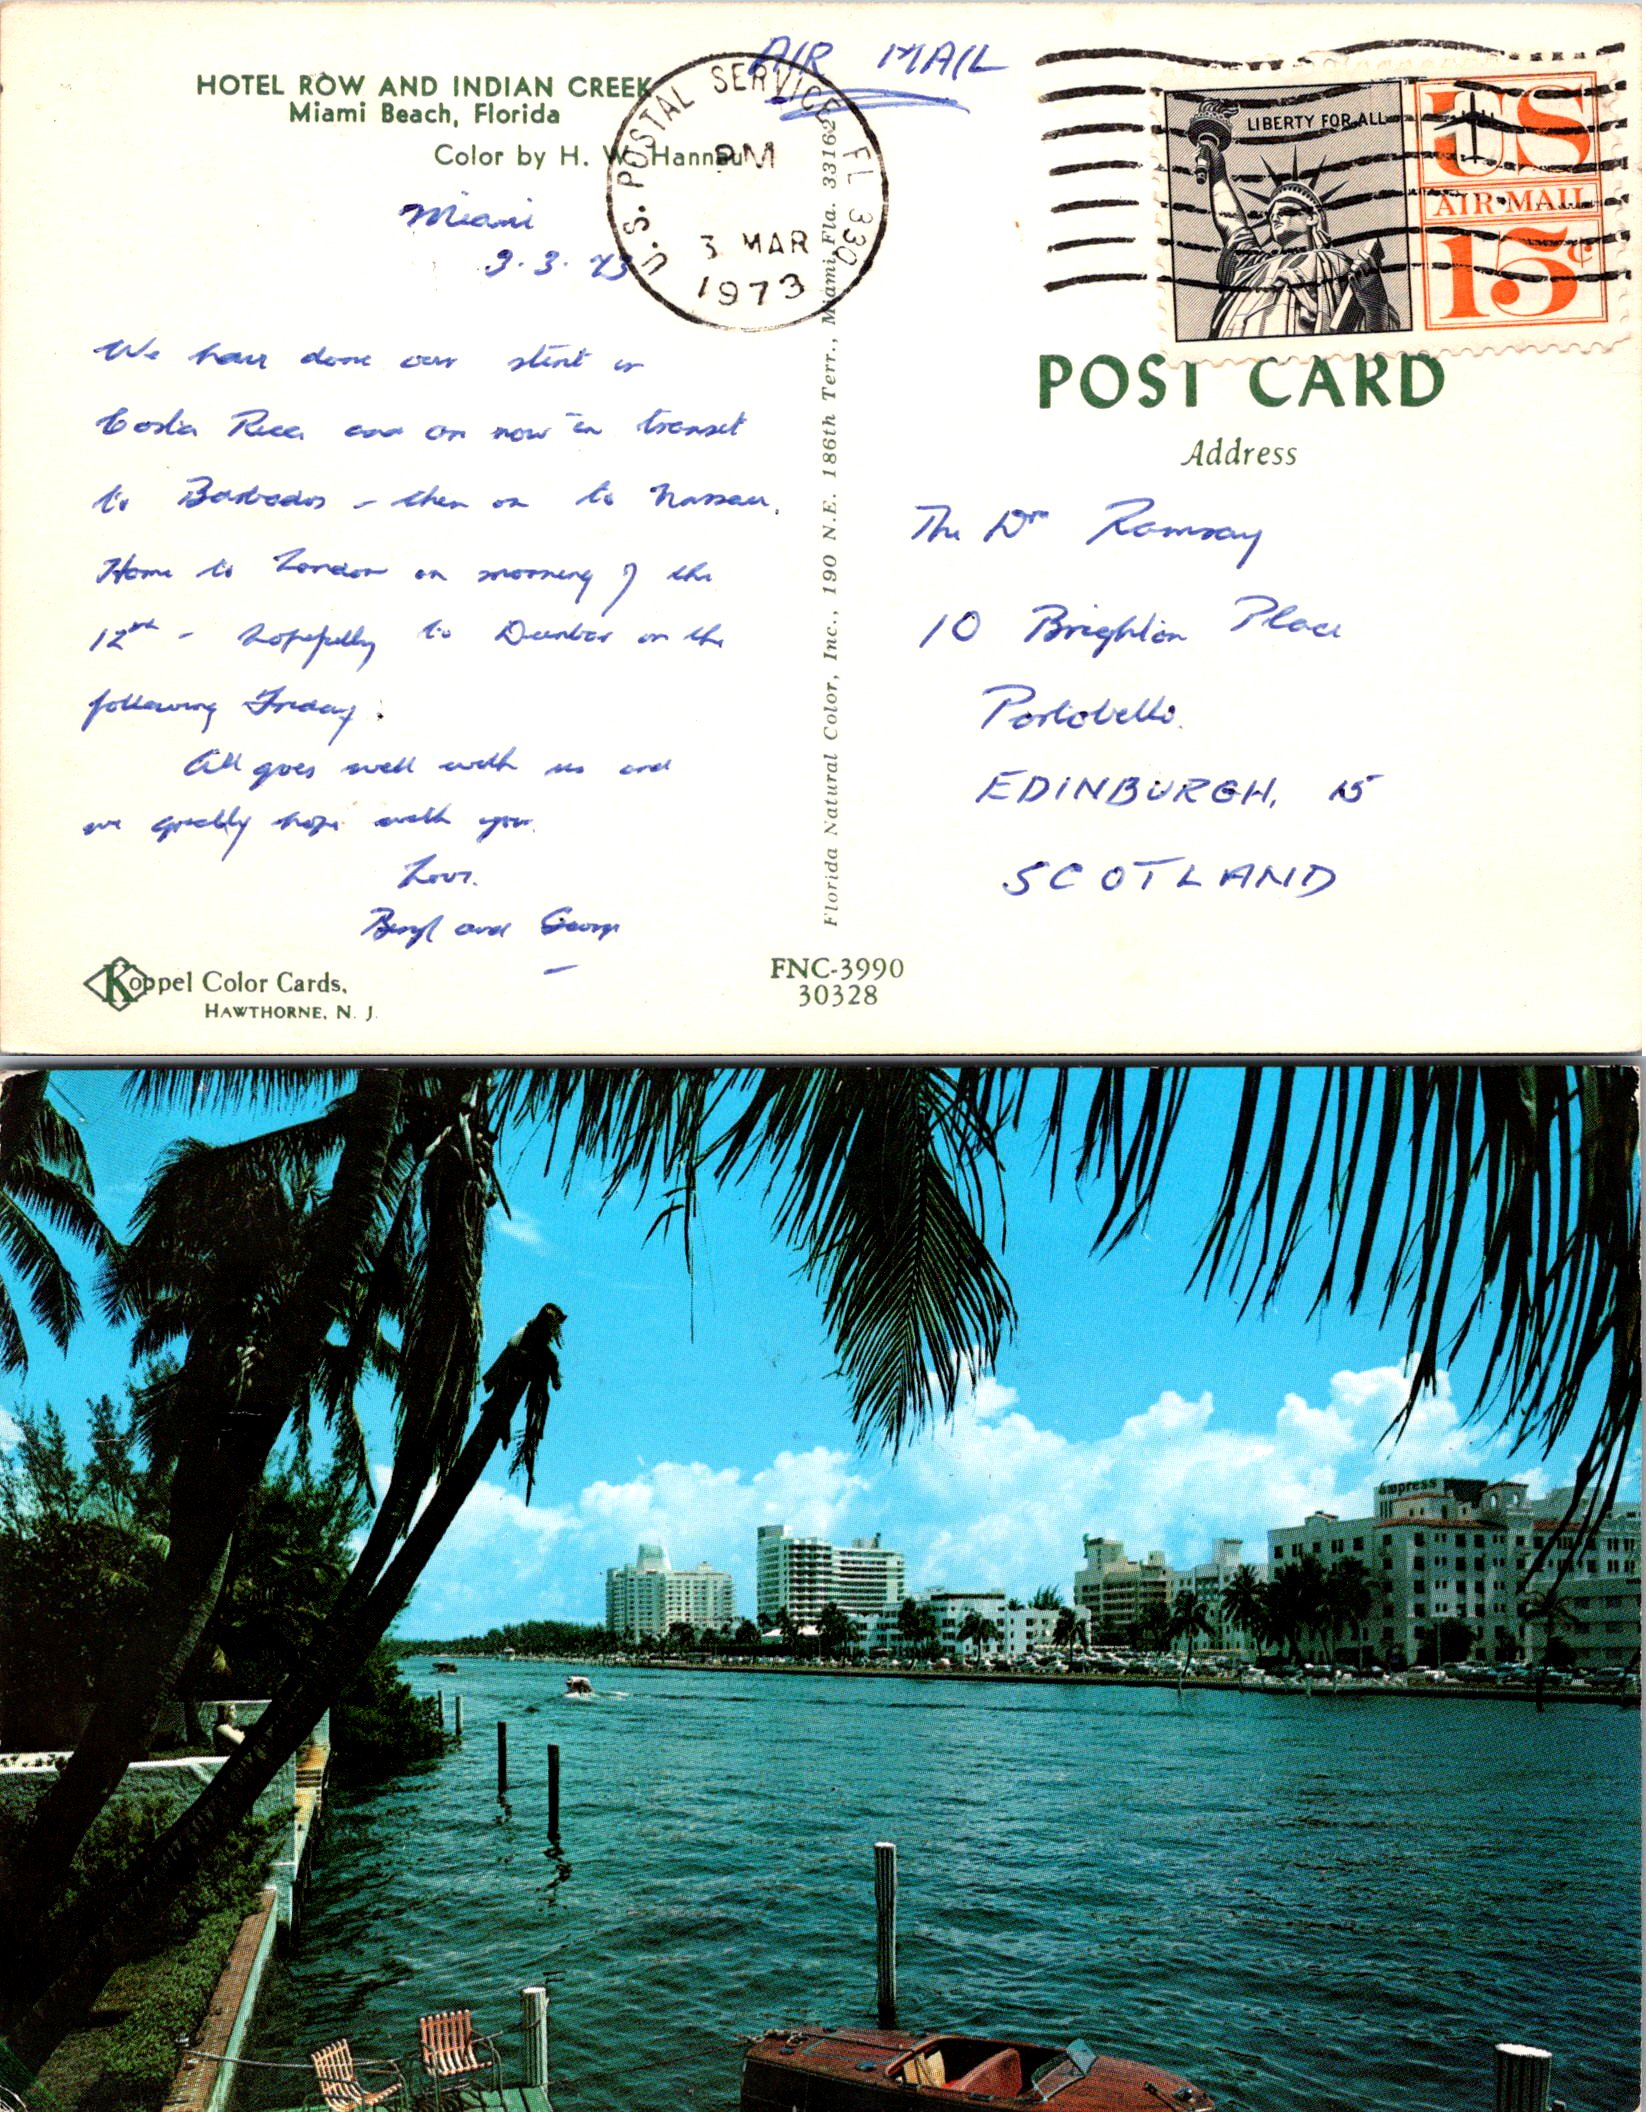 HOTEL ROW AND INDIAN CREEK
Miami Beach, Florida
Color by H. W. Hannau
AIR MAIL
U.S. POSTAL SERVICE FL 330
PM
3 MAR
1973
LIBERTY FOR ALL
US
AIR MAIL
15¢
Miami
3.3.73
We have done our stint in
Costa Rica and are now in transit
to Barbados – then on to Nassau.
Home to London on morning of the
12th – hopefully to Dunbar on the
following Friday.
All goes well with us and
we greatly hope with you.
Love.
Beryl and George
Florida Natural Color, Inc., 190 N.E. 186th Terr., Miami, Fla. 33162
POST CARD
Address
The Drs Ramsay
10 Brighton Place
Portobello.
EDINBURGH, 15
SCOTLAND
Koppel Color Cards,
HAWTHORNE, N. J.
FNC-3990
30328
Empress